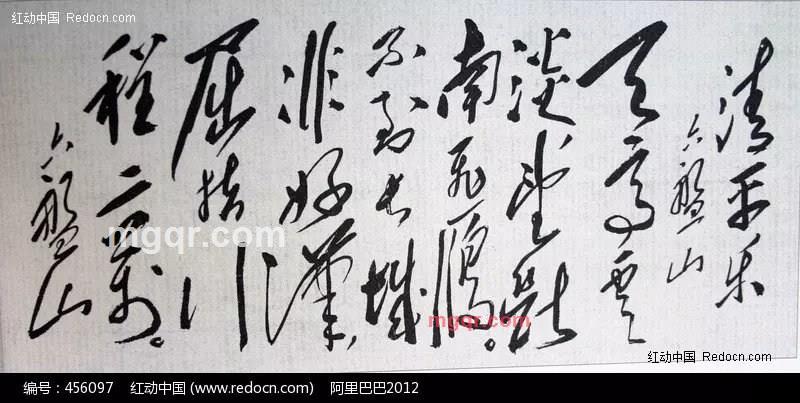 红动中国 Redocn.com
清平乐
六盤山
天高雲
淡望断
南飛雁。
不到长城
非好漢,
屈指行
程二萬。
六盤山
mgqr.com
mgqr.com
红动中国 .Redocn.com
编号：456097 红动中国 (www.redocn.com) 阿里巴巴2012